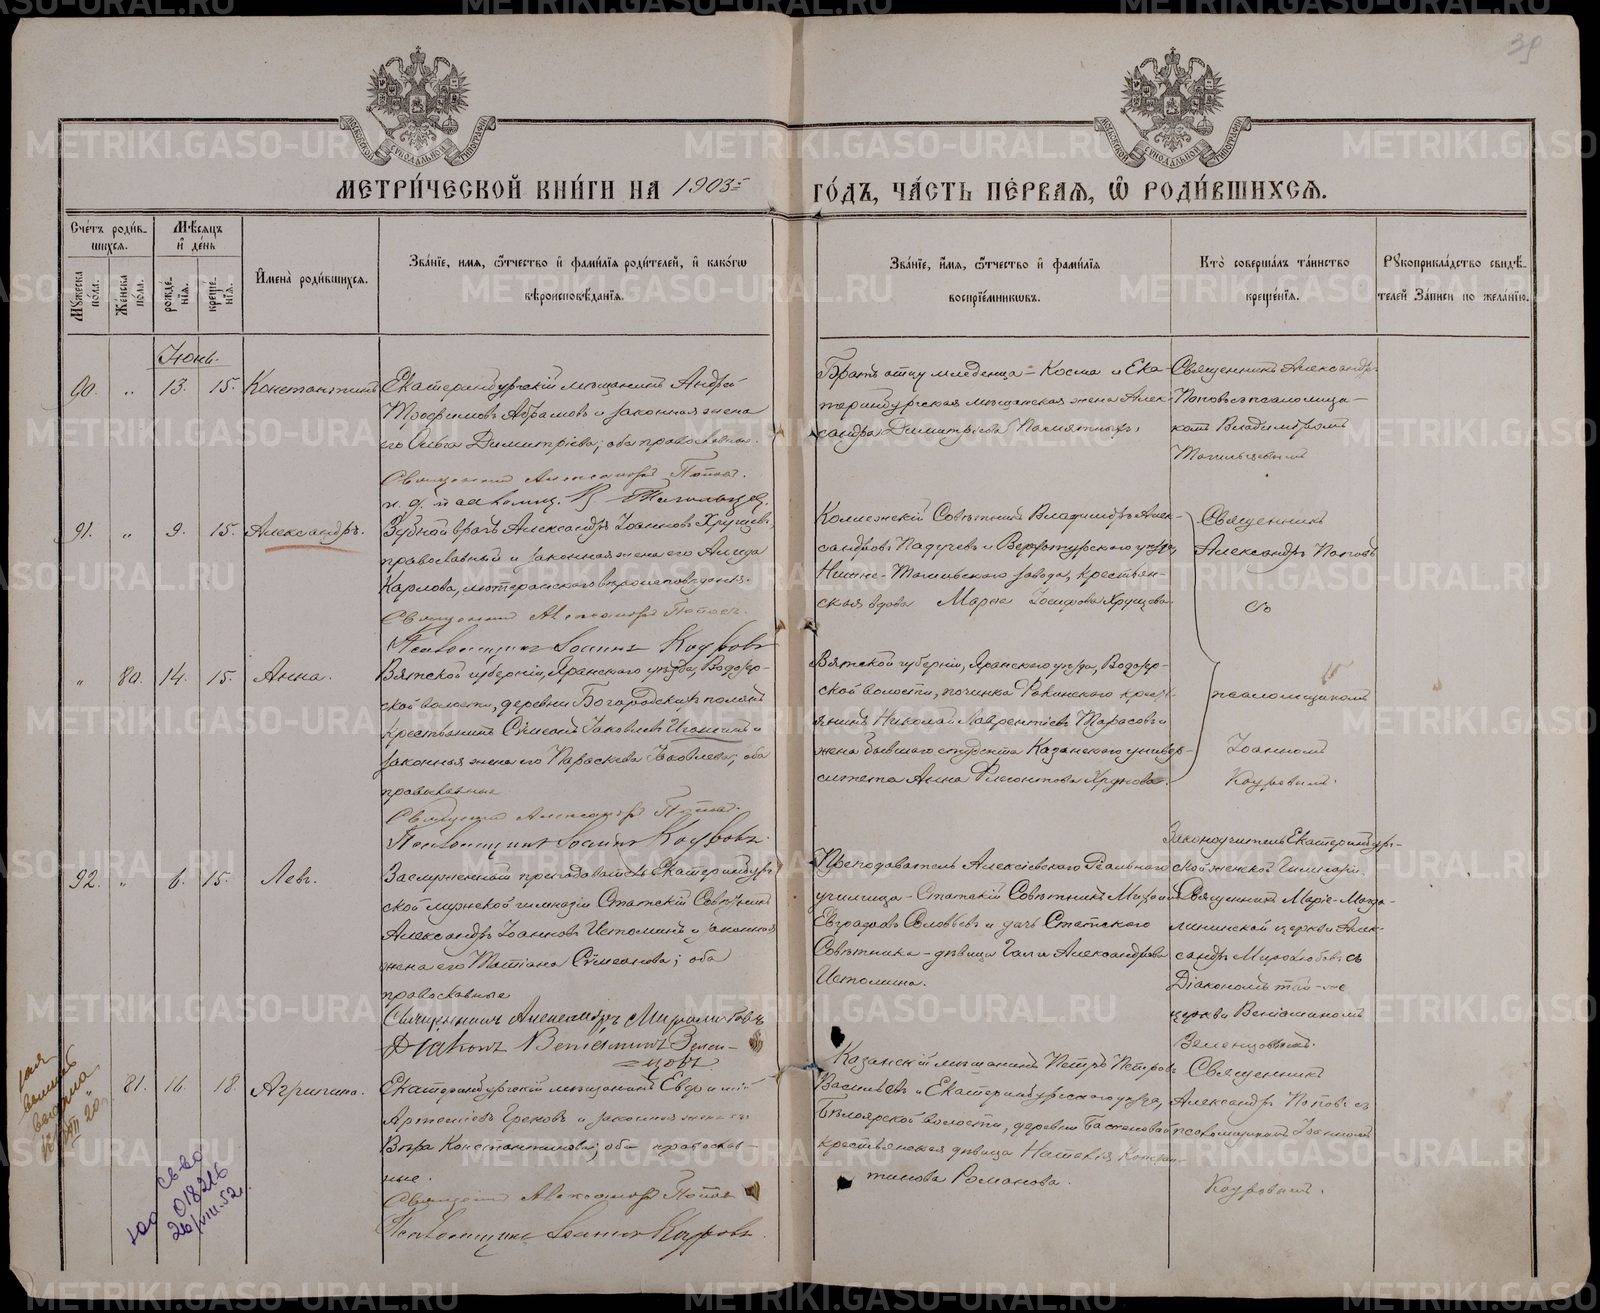 39
МОСКОВСКОЙ СѴНОДАЛЬНОЙ ТИПОГРАФІИ
МОСКОВСКОЙ СѴНОДАЛЬНОЙ ТИПОГРАФІИ
МЕТРИ́ЧЕСКОЙ КНИ́ГИ НА 1903 г ГО́ДЪ, ЧА́СТЬ ПЕ́РВАЯ, Ѿ РОДИ́ВШИХСЯ.
Сче́тъ роди́вшихся.
Му́жеска по́ла.
Же́нска по́ла.
Мѣ́сяцъ и҆ де́нь
рожде́нїя.
креще́нїя.
И҆мена̀ роди́вшихся.
Зва́нїе, и҆мя, ѻ҆́тчество и҆ фами́лїя роди́телей, и҆ како́гѡ вѣроисповѣ́данїя.
Зва́нїе, и҆́мя, ѻ҆́тчество и҆ фами́лїя воспрїе́мниковъ.
Кто̀ соверша́лъ та́инство креще́нїя.
Рукоприкла́дство свидѣ́телей за́писи по жела́нїю.
Іюнь.
90. „ 13. 15. Константинъ
Екатеринбургскій мѣщанинъ Андрей
Трофимовъ Абрамовъ и законная жена
его Ольга Димитріева; оба православные.
Священникъ Александръ Поповъ.
и. д. псаломщ. В. Тагильцев.
Братъ отцу младенца – Косма и Ека-
теринбургская мѣщанская жена Алек-
сандра Димитріева
Священникъ Александръ
Поповъ съ псаломщи-
комъ Владиміромъ
Тагильцевымъ
91. „ 9. 15. Александръ.
Зубной врачъ Александръ Іоанновъ Хрущевъ,
православный и законная жена его Алида
Карлова, лютеранского вѣроисповѣданія.
Священникъ Александръ Поповъ.
Псаломщикъ Іоаннъ Кауровъ
Коллежскій Совѣтникъ Владиміръ Алек-
сандровъ Падучевъ и Верхотурского уѣзда,
Нижне-Тагильского завода, крестьян-
ская вдова Марія Іосифова Хрущева.
Священникъ
Александръ Поповъ
съ
„ 80. 14. 15. Анна.
Вятской губерніи, Яранского уѣзда, Водозер-
ской волости, деревни Богородскихъ полянъ
крестьянинъ Сѵмеонъ Іаковлевъ и
законная жена его Параскева Іаковлева; оба
православные
Священникъ Александръ Поповъ.
Псаломщикъ Іоаннъ Кауровъ.
Вятской губерніи, Яранского уѣзда, Водозер-
ской волости, починка крест-
янинъ Николай Лаврентіевъ Тарасовъ и
жена бывшаго студента Казанского универ-
ситета Анна
псаломщикомъ
Іоанномъ
Кауровымъ.
92. „ 6. 15. Левъ.
Заслуженный преподаватель Екатеринбург-
ской мужской гимназіи Статскій Совѣтникъ
Александръ Іоанновъ Истоминъ и законная
жена его Татіана Сѵмеонова; оба
православные
Священникъ Александръ Миролюбовъ
Діаконъ Веніаминъ Зелен-
цовъ
Преподаватель Алексіевского Реального
училища – Статскій Совѣтникъ Михаилъ
Евграфовъ Соловьевъ и дочь Статского
Совѣтника – дѣвица Галя Александрова
Истомина.
Законоучитель Екатеринбург-
ской женской Гимназіи
Священникъ Маріе-Магда-
лининской церкви Алек-
сандръ Миролюбовъ съ
Діакономъ той-же
церкви Веніаминомъ
Зеленцовымъ.
81. 16. 18. Агрипина.
Екатеринбургскій мѣщанинъ Евфимій
Артеміевъ Грековъ и законная жена его
Вѣра Константинова; оба православ-
ные.
Священникъ Александръ Поповъ
Псаломщикъ Іоаннъ Кауровъ.
Казанскій мѣщанинъ Петръ Петровъ
Васильевъ и Екатеринбургского уѣзда,
Бѣлоярской волости, деревни
крестьянская дѣвица Наталія Констан-
тинова Романова.
Священникъ
Александръ Поповъ съ
псаломщикомъ Іоанномъ
Кауровымъ.
св-во
018216
26/VIII.52
METRIKI.GASO-URAL.RU